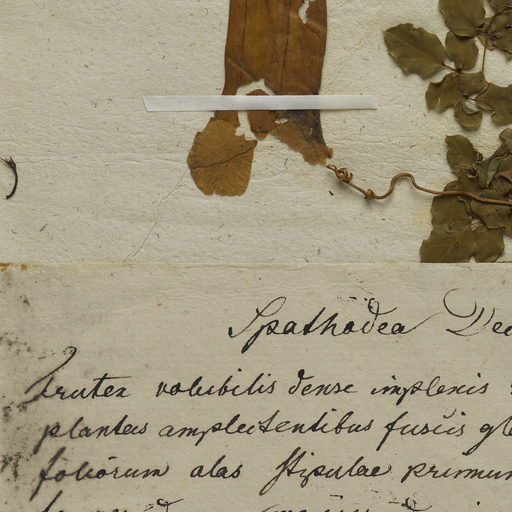 Spathodea Dec
Frutex volubilis dense implexis
plantas amplectentibus fusciis gl
foliorum alas stipulae primum